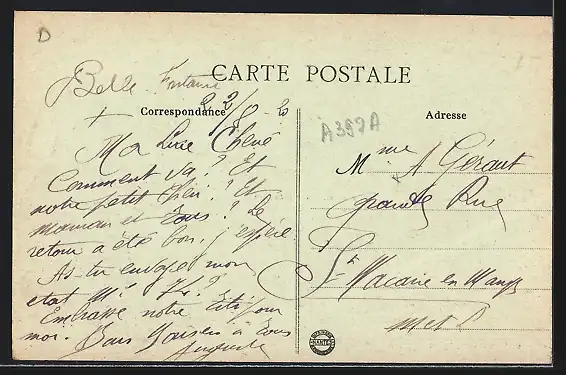 D
Belle Fontaine
CARTE POSTALE
Correspondance
Adresse
A397A
Ma Chérie
Comment va ? Et
notre petit ? Et
maman et Tous ? Le
retour a été bon, j'espère
As tu envoyé mon
état
Embrasse notre pour
moi. Bons Baisers à Tous
Auguste
Mme A Géraut
grande Rue
St Macaire en Mauges
M et L
NANTES